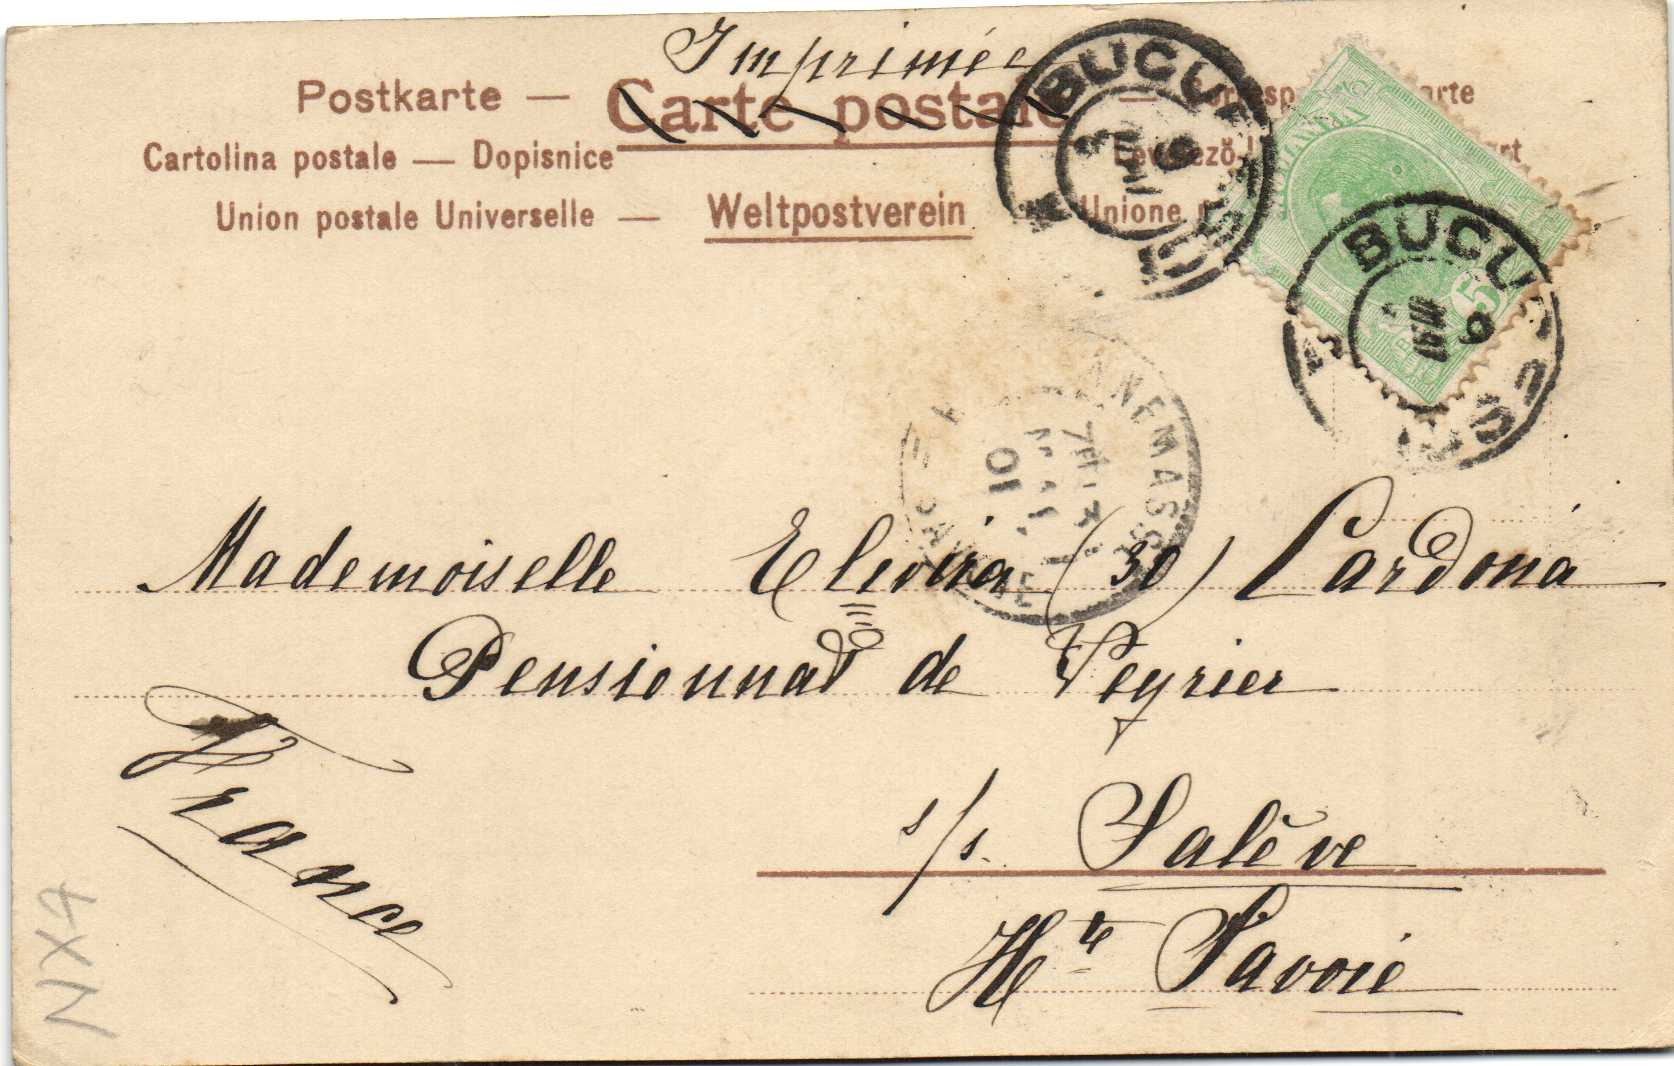 Imprimée
Postkarte — Carte postale —
Cartolina postale — Dopisnice
Union postale Universelle — Weltpostverein Unione
BUCU
BUCU
5
ANNEMASSE
01
Mademoiselle Elevira (30) Cardona
Pensionnat de Veyrier
s/s. Salève
Hte Savoie
France
NX4